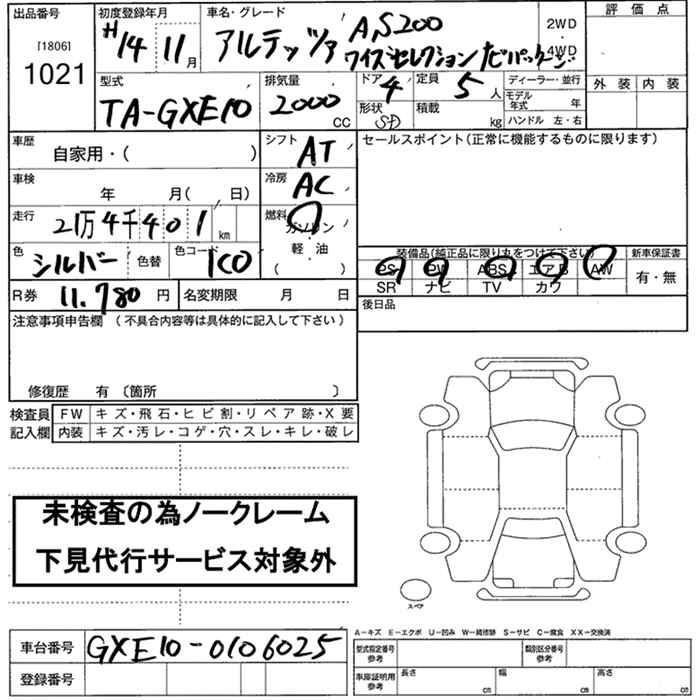 出品番号 初度登録年月 車名・グレード 評価点
[1806] H14年11月 アルテッツァ AS200 2WD
1021 ワイズセレクション ナビパッケージ 4WD
型式 排気量 ドア 4 定員 5人 ディーラー・並行 外装 内装
TA-GXE10 2000cc 形状 SD 積載 kg モデル年式 年
ハンドル 左・右
車歴 自家用・( ) シフト AT セールスポイント(正常に機能するものに限ります)
車検 年 月( 日) 冷房 AC
走行 2万4千401km 燃料 ガソリン
軽・油
( )
色 シルバー 色替 色コード 1C0 装備品(純正品に限り丸をつけて下さい) 新車保証書
PS PW ABS エアB AW 有・無
R券 11.780円 名変期限 月 日 SR ナビ TV カワ
注意事項申告欄 (不具合内容等は具体的に記入して下さい) 後日品
修復歴 有 〔箇所 〕
検査員 FW キズ・飛石・ヒビ割・リペア跡・X要
記入欄 内装 キズ・汚レ・コゲ・穴・スレ・キレ・破レ
未検査の為ノークレーム
下見代行サービス対象外
スペア
A―キズ E―エクボ U―凹み W―補修跡 S―サビ C―腐食 XX―交換済
車台番号 GXE10-0106025 型式指定番号 参考 類別区分番号 参考
登録番号 車庫証明用 参考 長さ cm 幅 cm 高さ cm